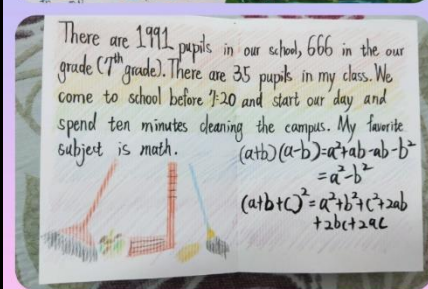 There are 1991 pupils in our school, 666 in the our
grade (7th grade). There are 35 pupils in my class. We
come to school before 7:20 and start our day and
spend ten minutes cleaning the campus. My favorite
subject is math.
(a+b)(a-b)=a²+ab-ab-b²
=a²-b²
(a+b+c)²=a²+b²+c²+2ab
+2bc+2ac